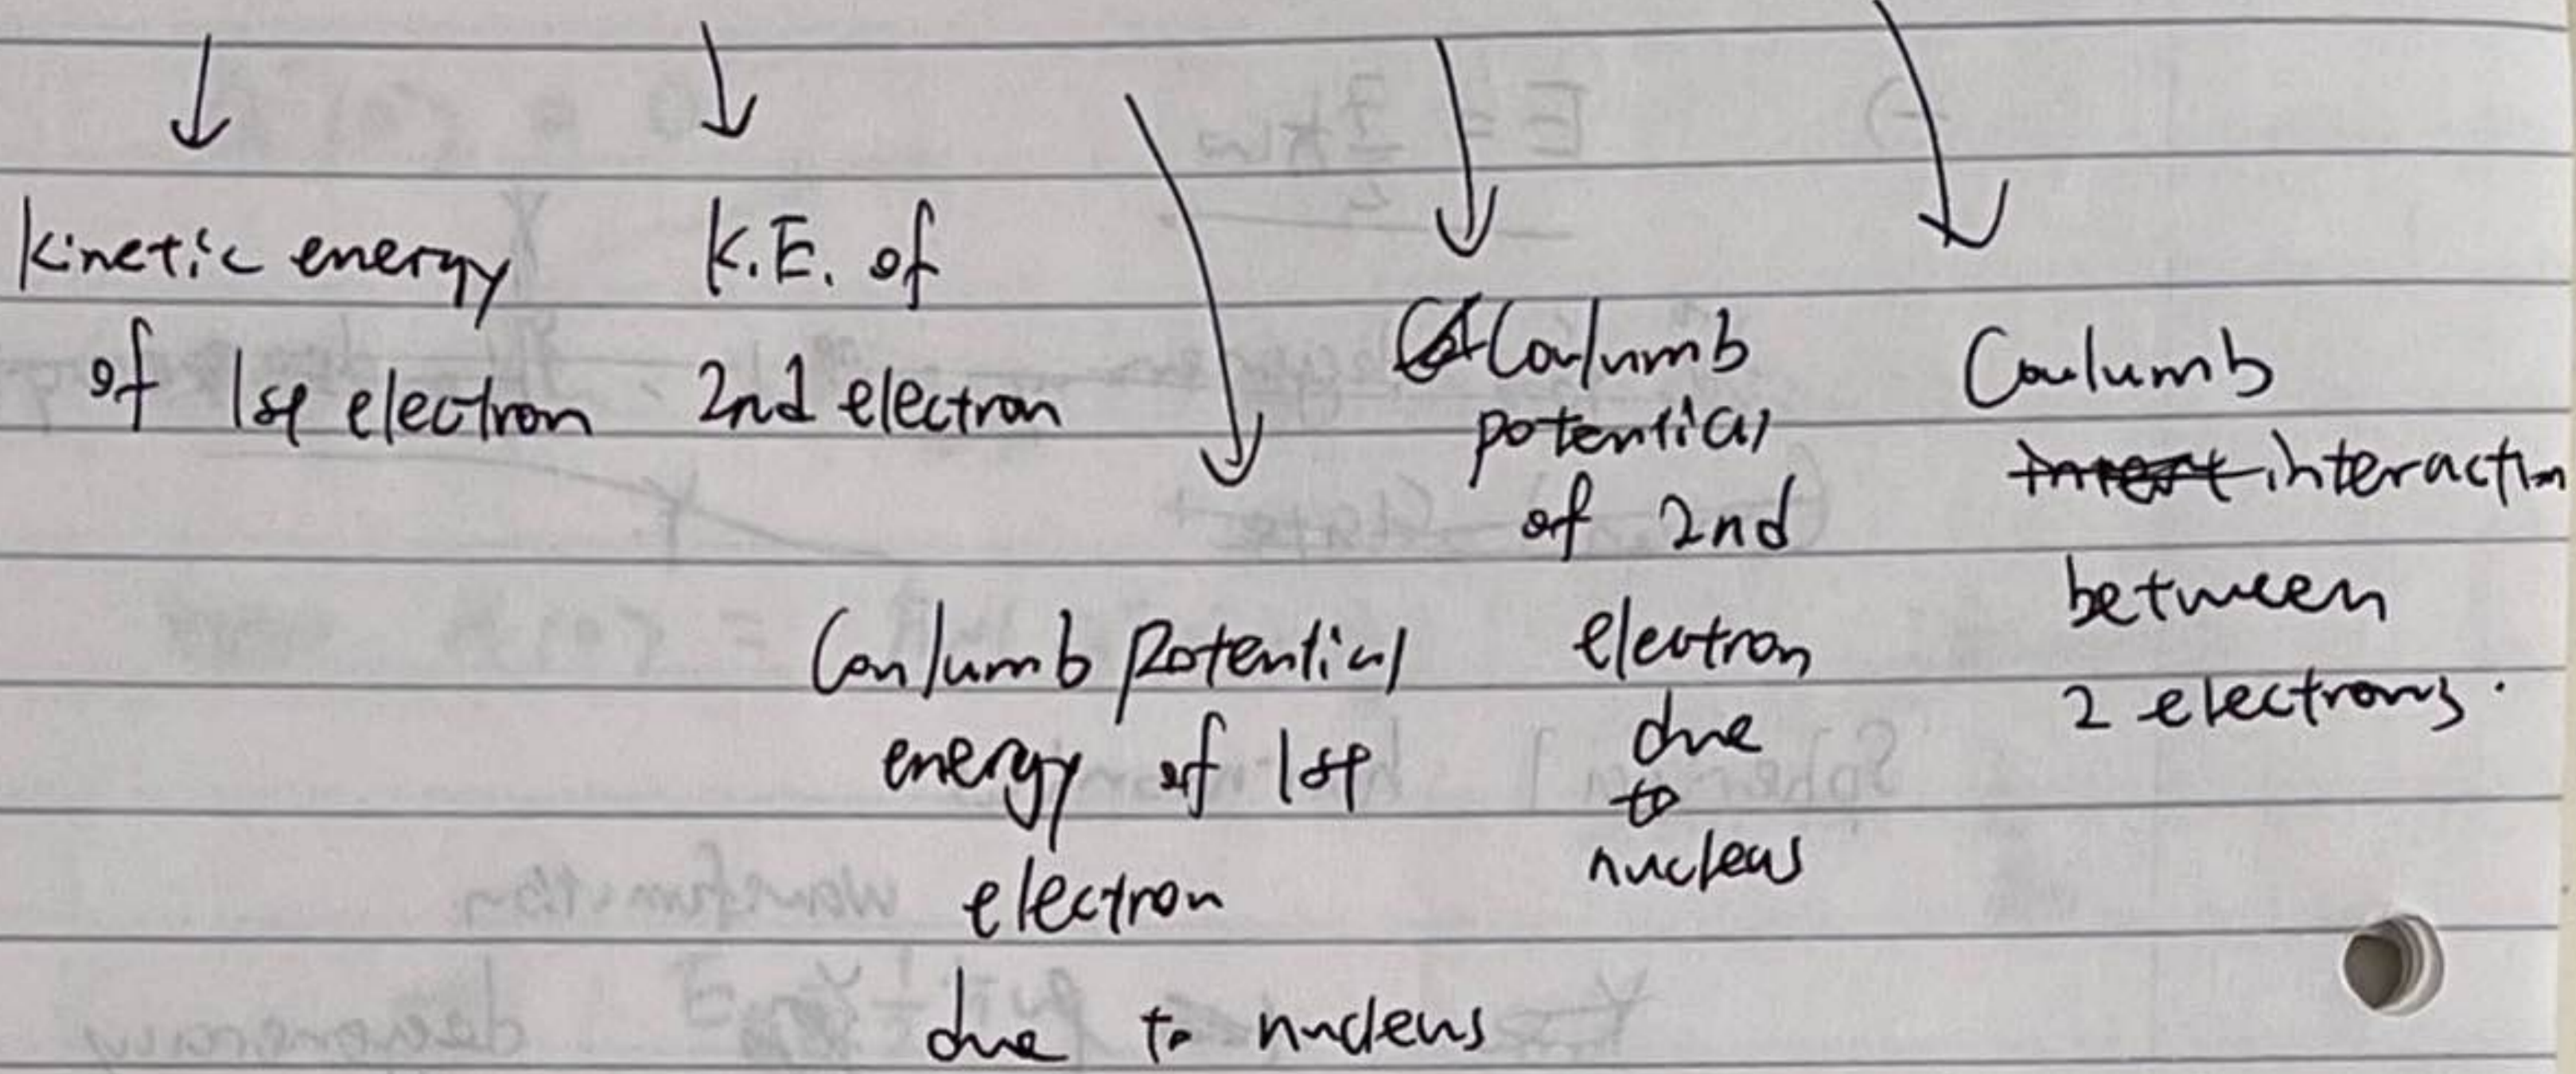 kinetic energy
of 1st electron
K.E. of
2nd electron
Coulumb potential
energy of 1st
electron
due to nucleus
Coulumb
potential
of 2nd
electron
due
to
nucleus
Coulumb
interaction
between
2 electrons.